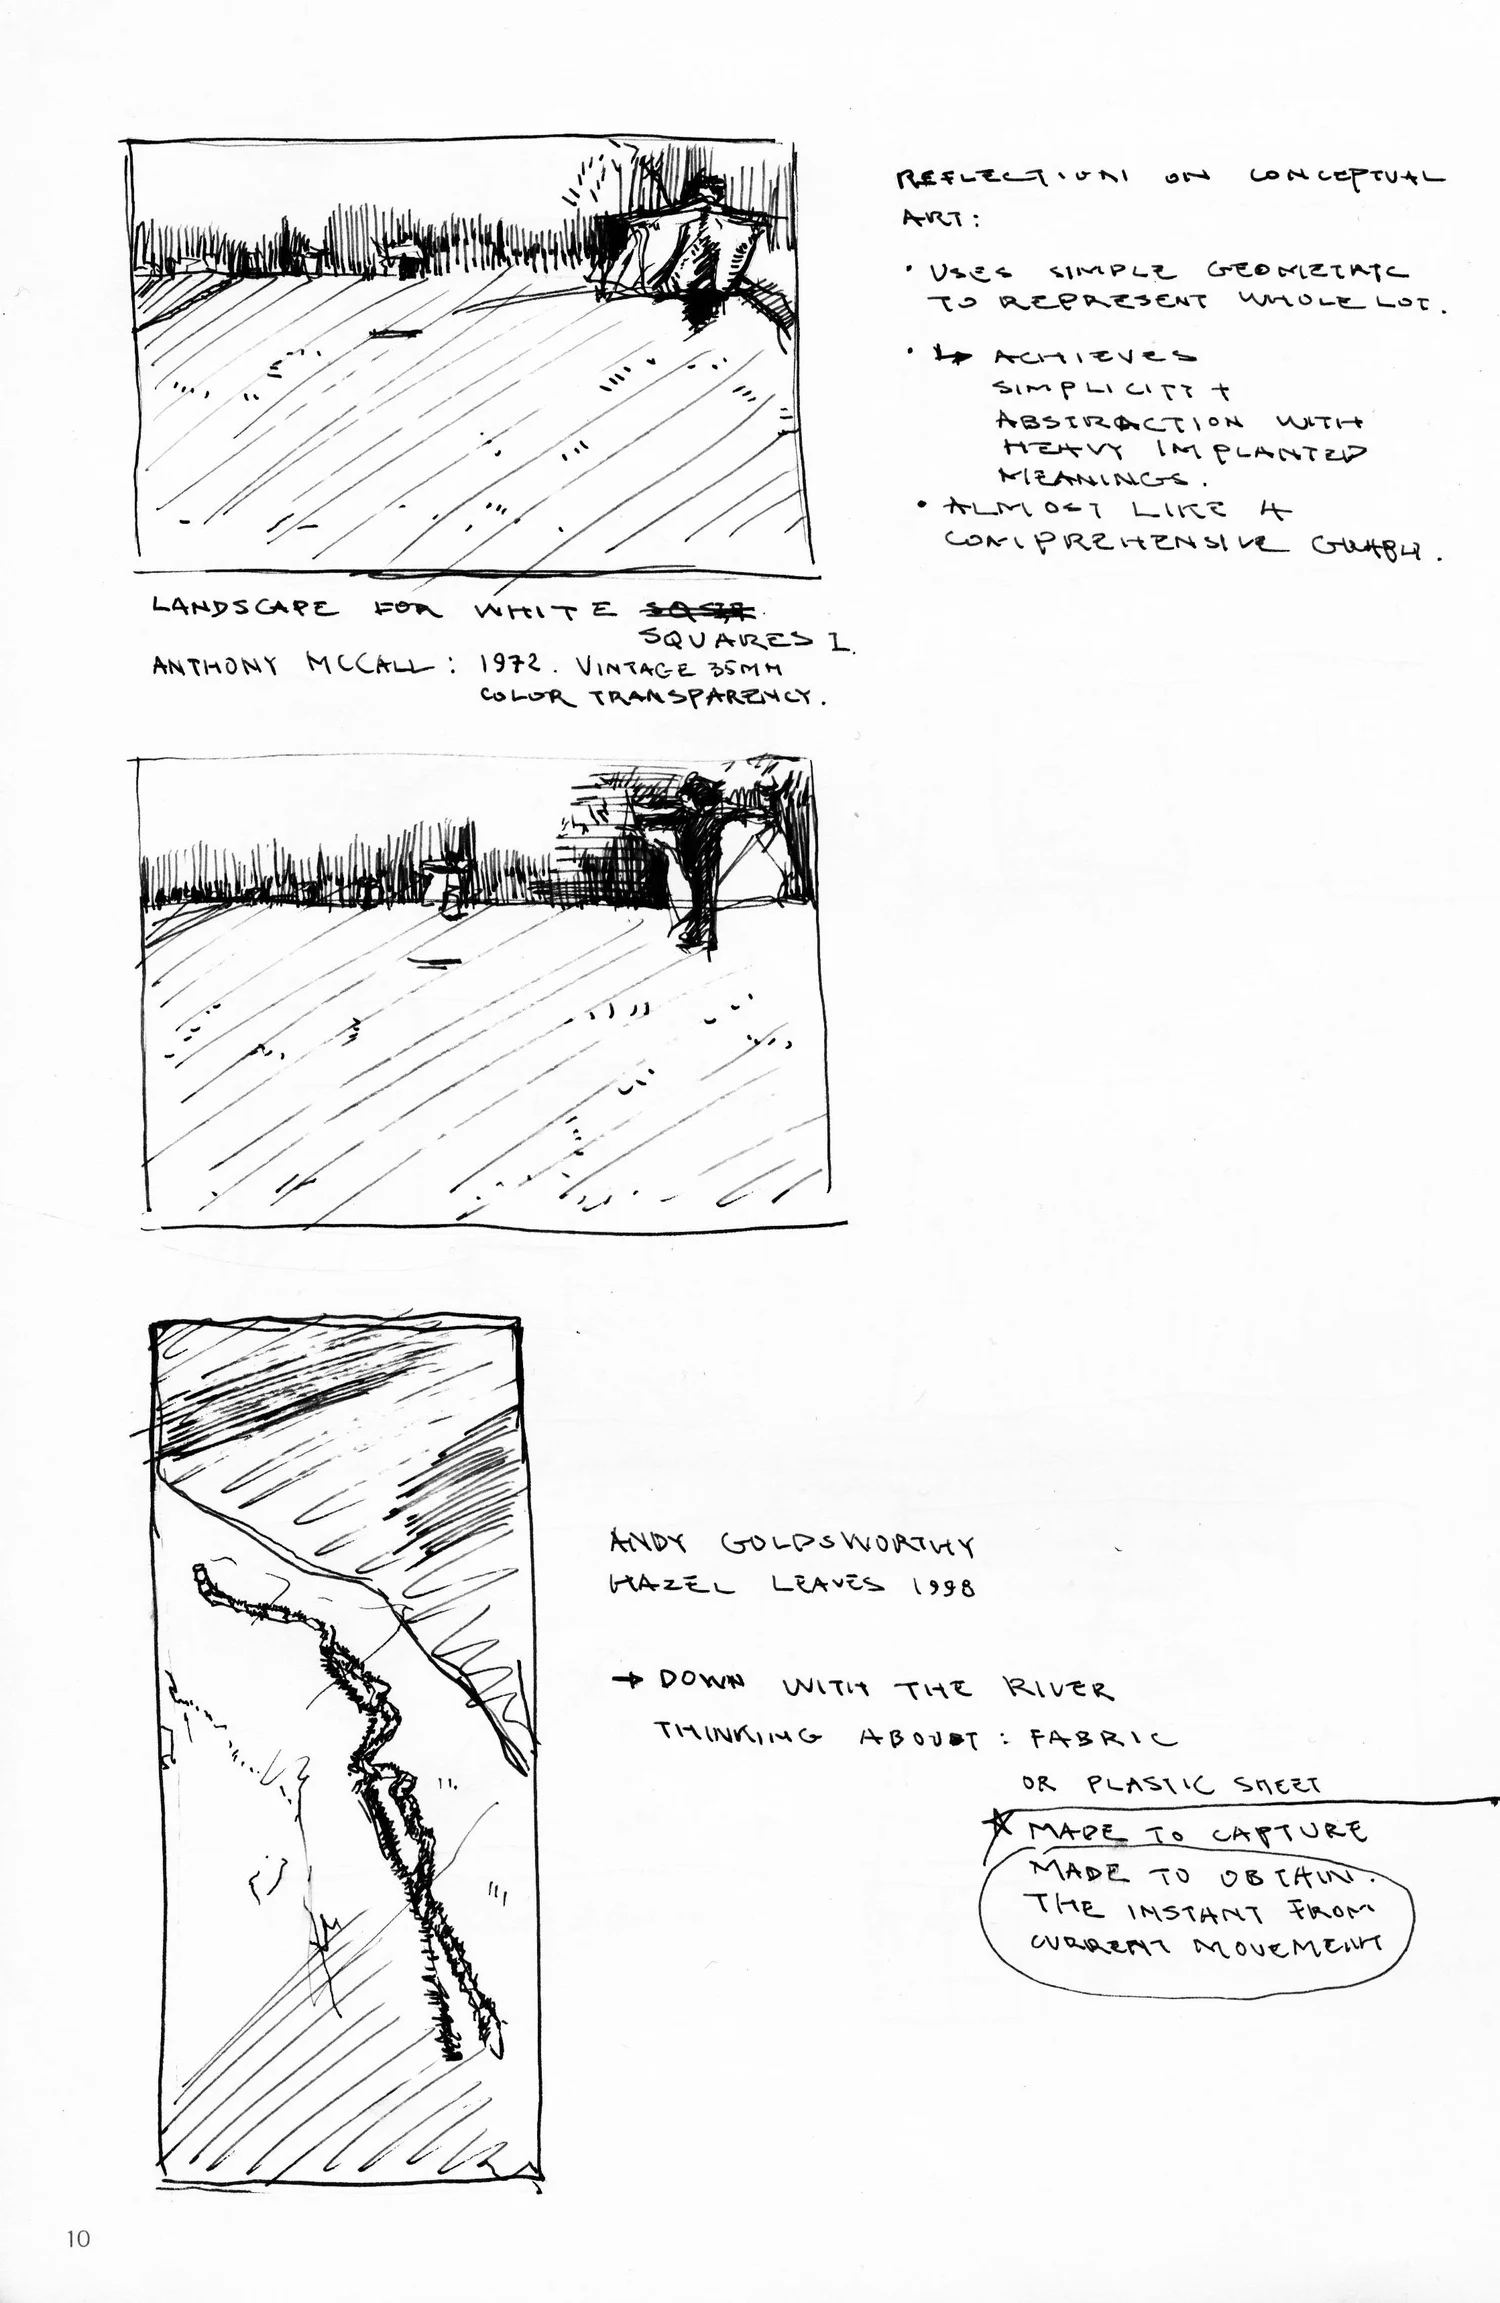 REFLECTIONS ON CONCEPTUAL
ART:
• USES SIMPLE GEOMETRIC
TO REPRESENT WHOLE LOT.
• ↳ ACHIEVES
SIMPLICITY +
ABSTRACTION WITH
HEAVY IMPLANTED
MEANINGS.
• ALMOST LIKE A
COMPREHENSIVE GRAPH.
LANDSCAPE FOR WHITE
SQUARES I.
ANTHONY MCCALL: 1972. VINTAGE 35MM
COLOR TRANSPARENCY.
ANDY GOLDSWORTHY
HAZEL LEAVES 1998
→ DOWN WITH THE RIVER
THINKING ABOUT: FABRIC
OR PLASTIC SHEET
★ MADE TO CAPTURE
MADE TO OBTAIN.
THE INSTANT FROM
CURRENT MOVEMENT
10